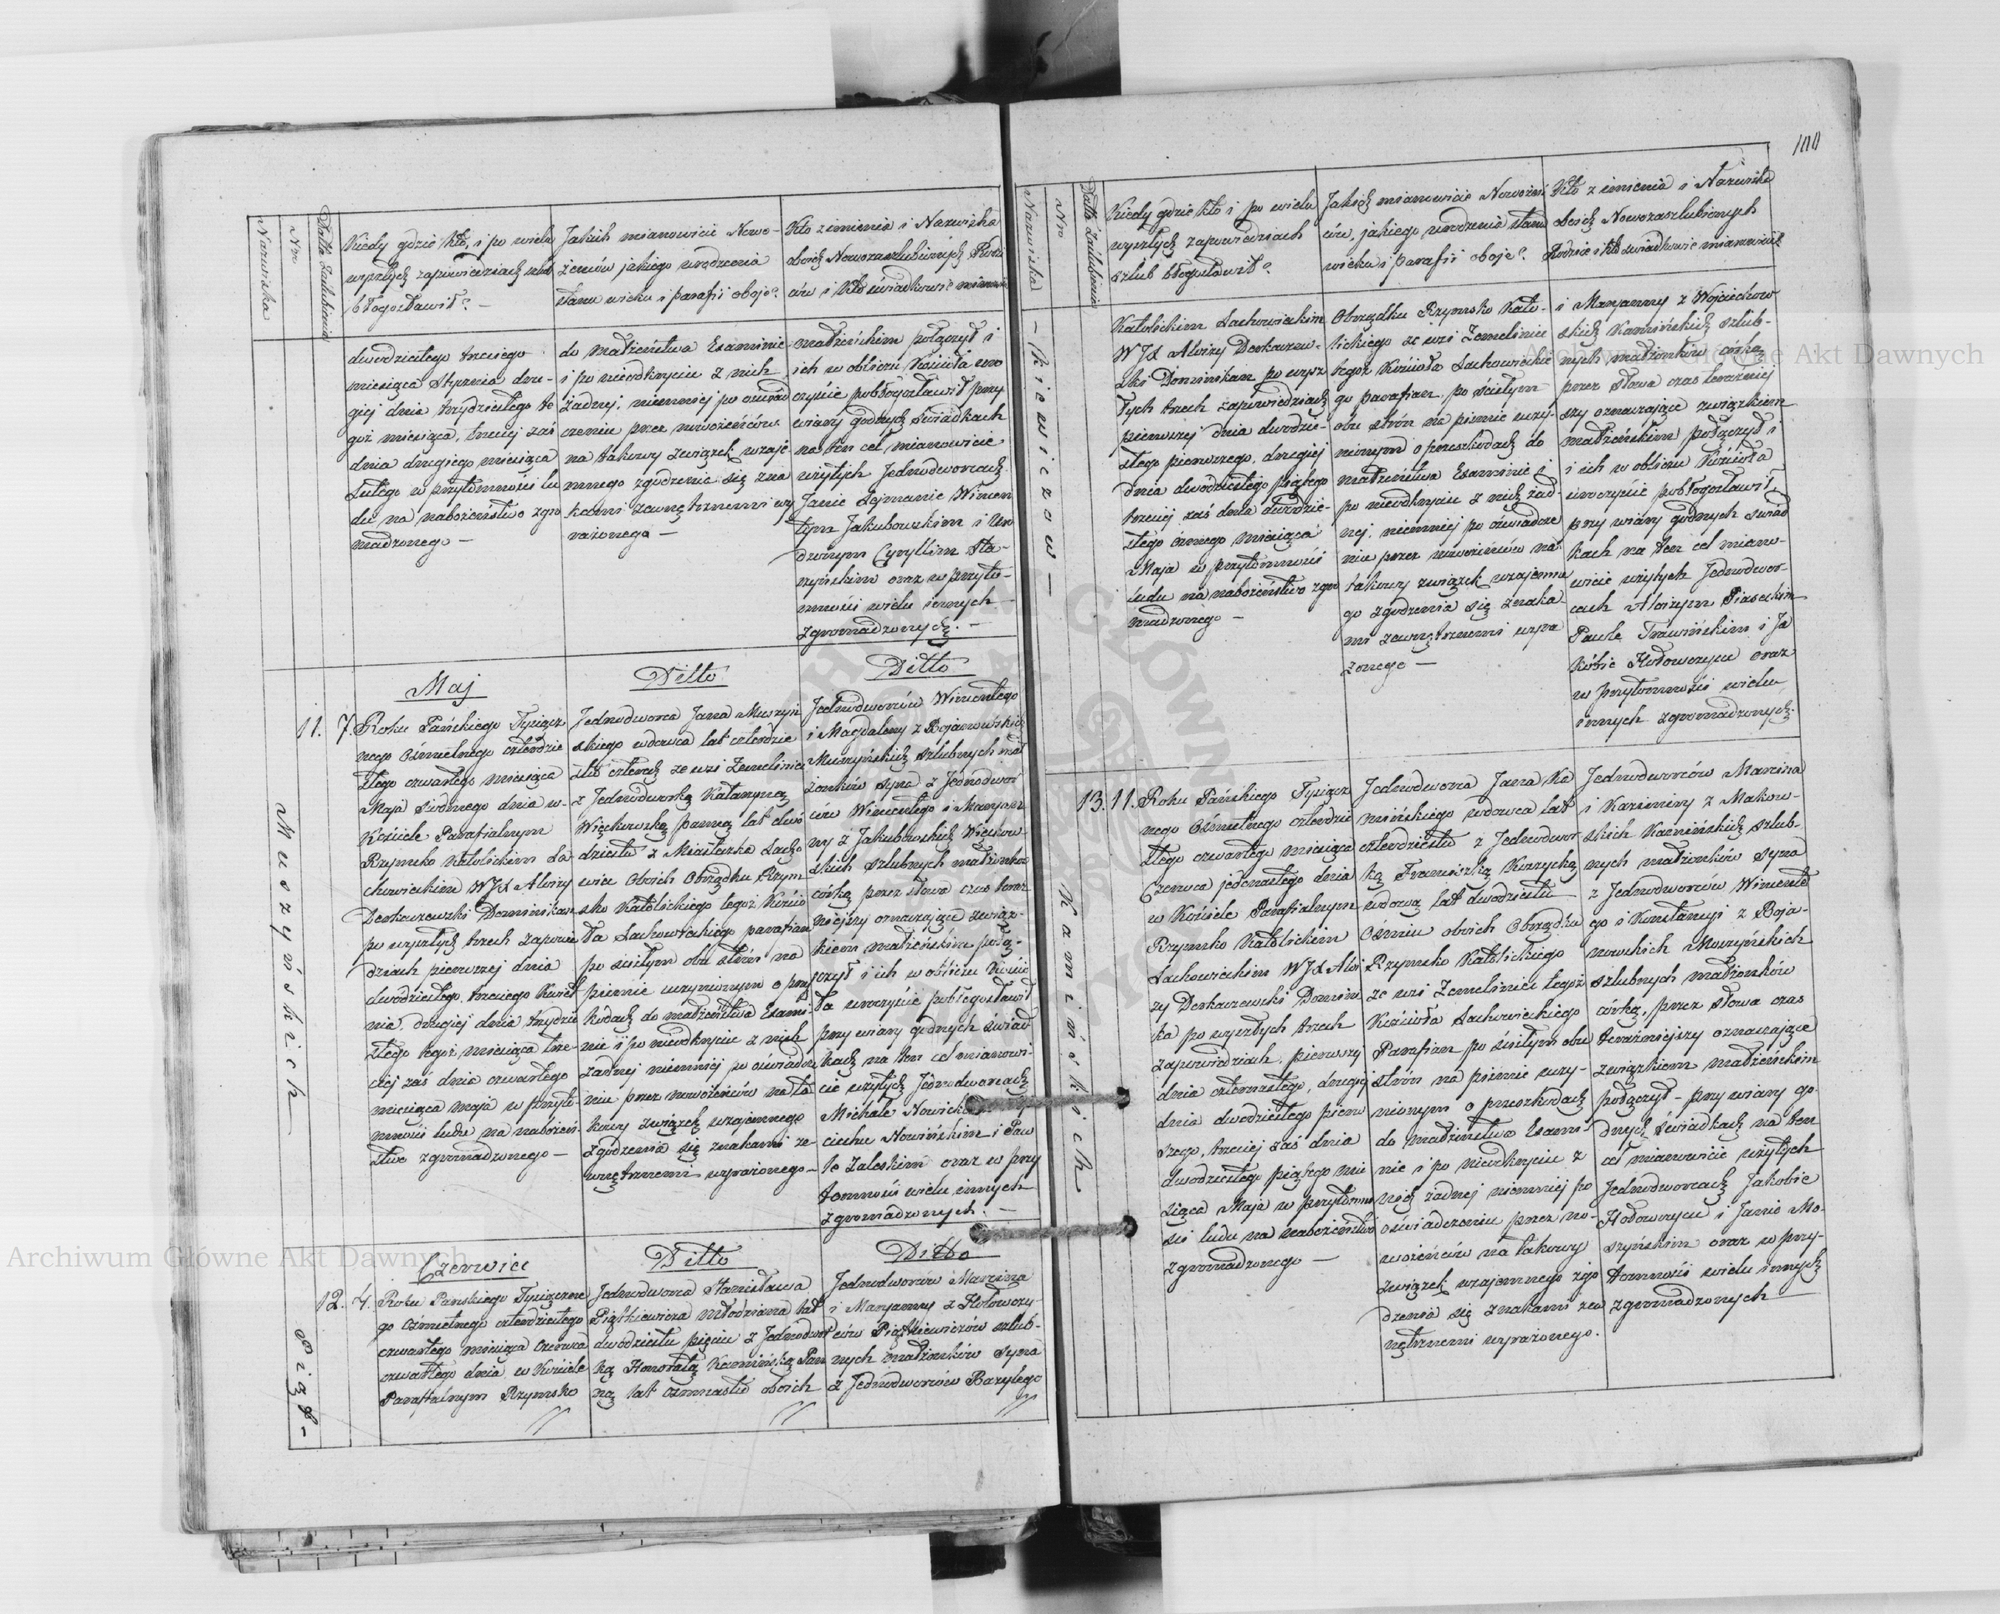 100
Nazwiska
Nro
Datta Zaslubienia
Kiedy gdzie kto, i po wielu
wyszłych zapowiedziach szlub
błogosławił? —
Jakich mianowicie Nowo-
żeńców jakiego urodzenia
stanu wieku i parafii oboje?
Kto z imienia i Nazwiska
oboich Nowozaszlubionych Rodzi
ców i Kto świadkowie mianowi
dwódziestego trzeciego
miesiąca Stycznia dru-
giej dnia trzydziestego te
goż miesiąca, trzeciej zaś
dnia drugiego miesiąca
Lutego w przytomności lu
du na nabożeństwo zgro
madzonego —
do małżeństwa Examinie
i po nieodkryciu z nich
żadnej, niemniej po oświad
czeniu przez nowożeńców
na takowy związek wzaje
mnego zgodzenia się zna
kami zewnętrznemi wy
rażonego —
małżeńskim połączył i
ich w obliczu Kościoła uro
czyście pobłogosławił przy
wiary godnych świadkach
na ten cel mianowicie
użytych Jednodworcach
Janie Szymanie Wincen
tym Jakubowskim i Uro
dzonym Cyryllim Sta-
rzyńskim oraz w przyto-
mności wielu innych
zgromadzonych. —
Muszyńskich
11. 7.
Maj
Roku Pańskiego Tysiącz
nego Ośmsetnego czterdzie
stego czwartego miesiąca
Maja siodmego dnia w-
Kościele Parafialnym
Rzymsko Katolickim La
chowieckim WJX Aloizy
Deskaszewski Dominikan
po wyszłych trzech zapowie
dziach pierwszej dnia
dwódziestego trzeciego Kwiet
nia, drugiej dnia trzydzie
stego tegoż miesiąca trze-
ciej zaś dnia czwartego
miesiąca maja w przyto-
mności ludu na nabożeń
stwo zgromadzonego —
Ditto
Jednodworca Jana Muszyń
skiego wdowca lat czterdzie
stu czterech ze wsi Zemeliniec
z Jednodworką Katarzyną
Więckowską panną lat dwó
dziestu z Miasteczka Lacho
wiec Oboich Obrządku Rzym
sko Katolickiego tegoż Kościo
ła Lachowieckiego parafian
po ścisłym obu strón na
piśmie uczynionym o prze
szkodach do małżeństwa Exami-
nie i po nieodkryciu z nich
żadnej niemniej po oświadcze
niu przez nowożeńców na ta
kowy związek wzajemnego
zgodzenia się znakami ze-
wnętrznemi wyrażonego —
Ditto
Jednodworców Wincentego
i Magdaleny z Bojanowskich
Muszyńskich szlubnych mał
żonków syna z Jednodwor
ców Wincentego i Maryan
ny z Jakubowskich Więckow-
skich szlubnych małżonków
córką przez słowa czas teraz
niejszy oznaczające związ-
kiem małżeńskim połą-
czył i ich w obliczu Kościo
ła uroczyście pobłogosławił
przy wiary godnych świad
kach na ten cel mianowi
cie użytych Jednodworcach
Michale Nowick
ciechu Nowińskim i Paw
le Zaleskim oraz w przy
tomności wielu innych
zgromadzonych. —
12. 4.
Czerwiec
Roku Pańskiego Tysiączne
go Ośmsetnego czterdziestego
czwartego miesiąca czerwca
czwartego dnia w Kościele
Parafialnym Rzymsko
Ditto
Jednodworca Stanisława
Piątkiewicza młodziana lat
dwódziestu pięciu z Jednodwor
ką Honoratą Kamińską Pan
ną lat ośmnastu oboich
Ditto
Jednodworców Marcina
i Maryanny z Hołowczy-
ców Piątkiewiczów szlub-
nych małżonków syna
z Jednodworców Bazylego
Piąt-
Nazwiska
Nro
Datta Zaślubienia
Kiedy gdzie kto i po wielu
wyszłych zapowiedziach
szlub błogosławił?
Jakich mianowicie Nowożeń
ców, jakiego urodzenia stanu
wieku i parafii oboje?
Kto z imienia i Nazwiska
oboich Nowozaszlubionych
Rodzice i kto świadkowie mianowicie
— kiewiczow —
Katolickim Lachowieckim
WJX Aloizy Deskaszew-
ski Dominikan po wysz
łych trzech zapowiedziach
pierwszej dnia dwódzie-
stego pierwszego, drugiej
dnia dwódziestego piątego
trzeciej zaś dnia dwódzie-
stego osmego miesiąca
Maja w przytomności
ludu na nabożeństwo zgro
madzonego —
Obrządku Rzymsko Kato-
lickiego ze wsi Zemeliniec
tegoż Kościoła Lachowieckie
go parafian, po ścisłym
obu strón na piśmie uczy-
nionym o przeszkodach do
małżeństwa Examinie i
po nieodkryciu z nich żad-
nej, niemniej po oświadcze
niu przez nowożeńców na
takowy związek wzajemne
go zgodzenia się znaka
mi zewnętrznemi wyra
żonego —
i Maryanny z Wojciechow
skich Kamińskich szlub-
nych małżonków córką
przez słowa czas teraźniej
szy oznaczające związkiem
małżeńskim połączył i
i ich w obliczu Kościoła
uroczyście pobłogosławił
przy wiary godnych świad
kach na ten cel miano-
wicie użytych Jednodwor-
cach Aloizym Piaseckim
Pawle Trawińskim i Ja
kóbie Hołowczycu oraz
w przytomności wielu
innych zgromadzonych.
Kamińskich
13. 11.
Roku Pańskiego Tysiącz
nego Ośmsetnego czterdzie
stego czwartego miesiąca
Czerwca jedenastego dnia
w Kościele Parafialnym
Rzymsko Katolickim
Lachowieckim WJX Aloi
zy Deskaszewski Domini
ka po wyszłych trzech
zapowiedziach, pierwszej
dnia czternastego, drugiej
dnia dwódziestego pierw
szego, trzeciej zaś dnia
dwódziestego piątego mie
siąca Maja w przytomno
ści ludu na nabożeństwo
zgromadzonego —
Jednodworca Jana Ka
mińskiego wdowca lat
czterdziestu z Jednodwor
ką Franciszką Kurzycką
wdową lat dwódziestu
Ośmiu oboich Obrządku
Rzymsko Katolickiego
ze wsi Zemeliniec tegoż
Kościoła Lachowieckiego
Parafian po ścisłym obu
strón na piśmie uczy-
nionym o przeszkodach
do małżeństwa Exami-
nie i po nieodkryciu z
nich żadnej niemniej po
oświadczeniu przez no-
wożeńców na takowy
związek wzajemnego zgo
dzenia się znakami zew
nętrznemi wyrażonego.
Jednodworców Marcina
i Kazimiry z Makow-
skich Kamińskich szlub-
nych małżonków syna
z Jednodworców Wincente
go i Konstancyi z Boja-
nowskich Muszyńskich
szlubnych małżonków
córką, przez słowa czas
teraźniejszy oznaczające
związkiem małżeńskim
połączył — przy wiary go-
dnych świadkach na ten
cel mianowicie użytych
Jednodworcach Jakobie
Hołowczycu i Janie Mo-
szyńskim oraz w przy-
tomności wielu innych
zgromadzonych —
Archiwum Główne Akt Dawnych
Archiwum Główne Akt Dawnych